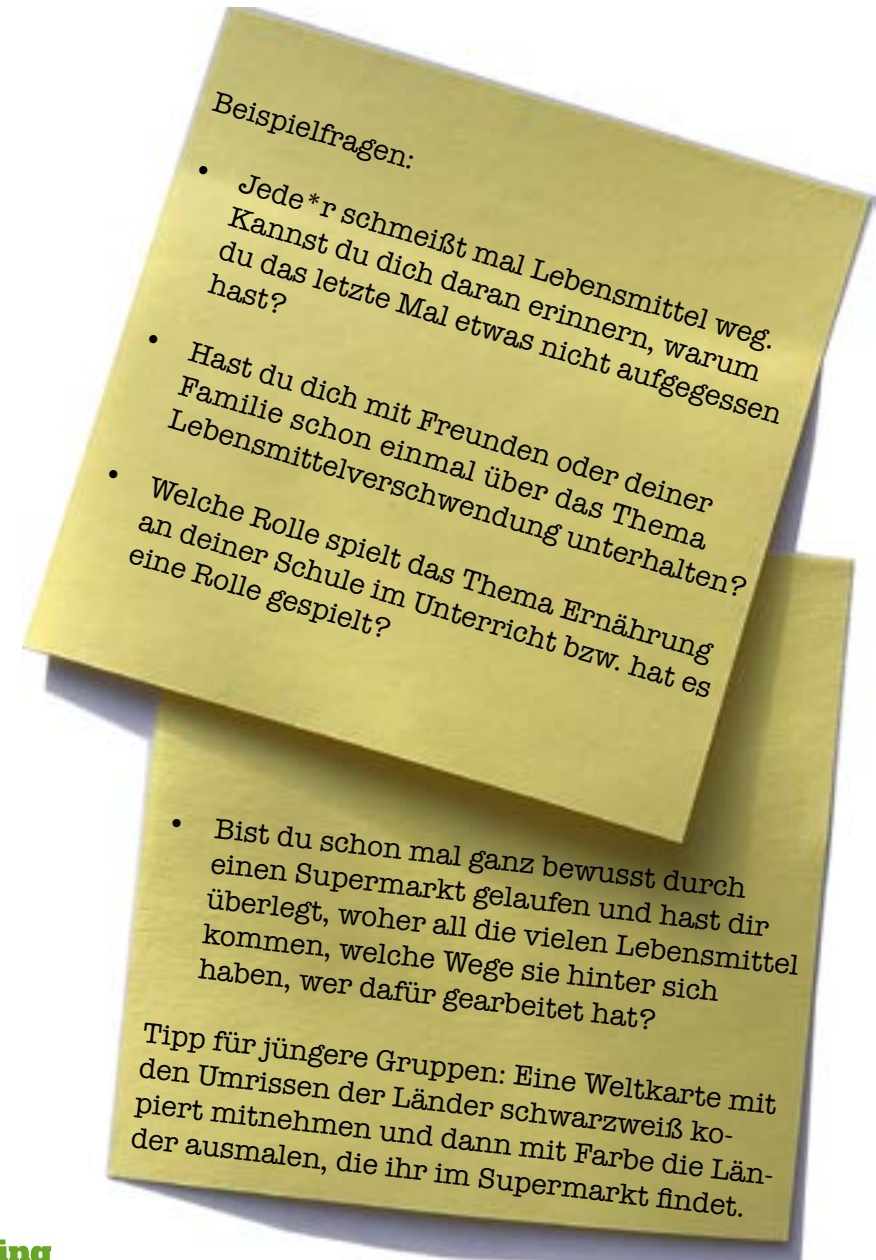 Beispielfragen:
• Jede*r schmeißt mal Lebensmittel weg.
Kannst du dich daran erinnern, warum
du das letzte Mal etwas nicht aufgegessen
hast?
• Hast du dich mit Freunden oder deiner
Familie schon einmal über das Thema
Lebensmittelverschwendung unterhalten?
• Welche Rolle spielt das Thema Ernährung
an deiner Schule im Unterricht bzw. hat es
eine Rolle gespielt?
• Bist du schon mal ganz bewusst durch
einen Supermarkt gelaufen und hast dir
überlegt, woher all die vielen Lebensmittel
kommen, welche Wege sie hinter sich
haben, wer dafür gearbeitet hat?
Tipp für jüngere Gruppen: Eine Weltkarte mit
den Umrissen der Länder schwarzweiß ko-
piert mitnehmen und dann mit Farbe die Län-
der ausmalen, die ihr im Supermarkt findet.